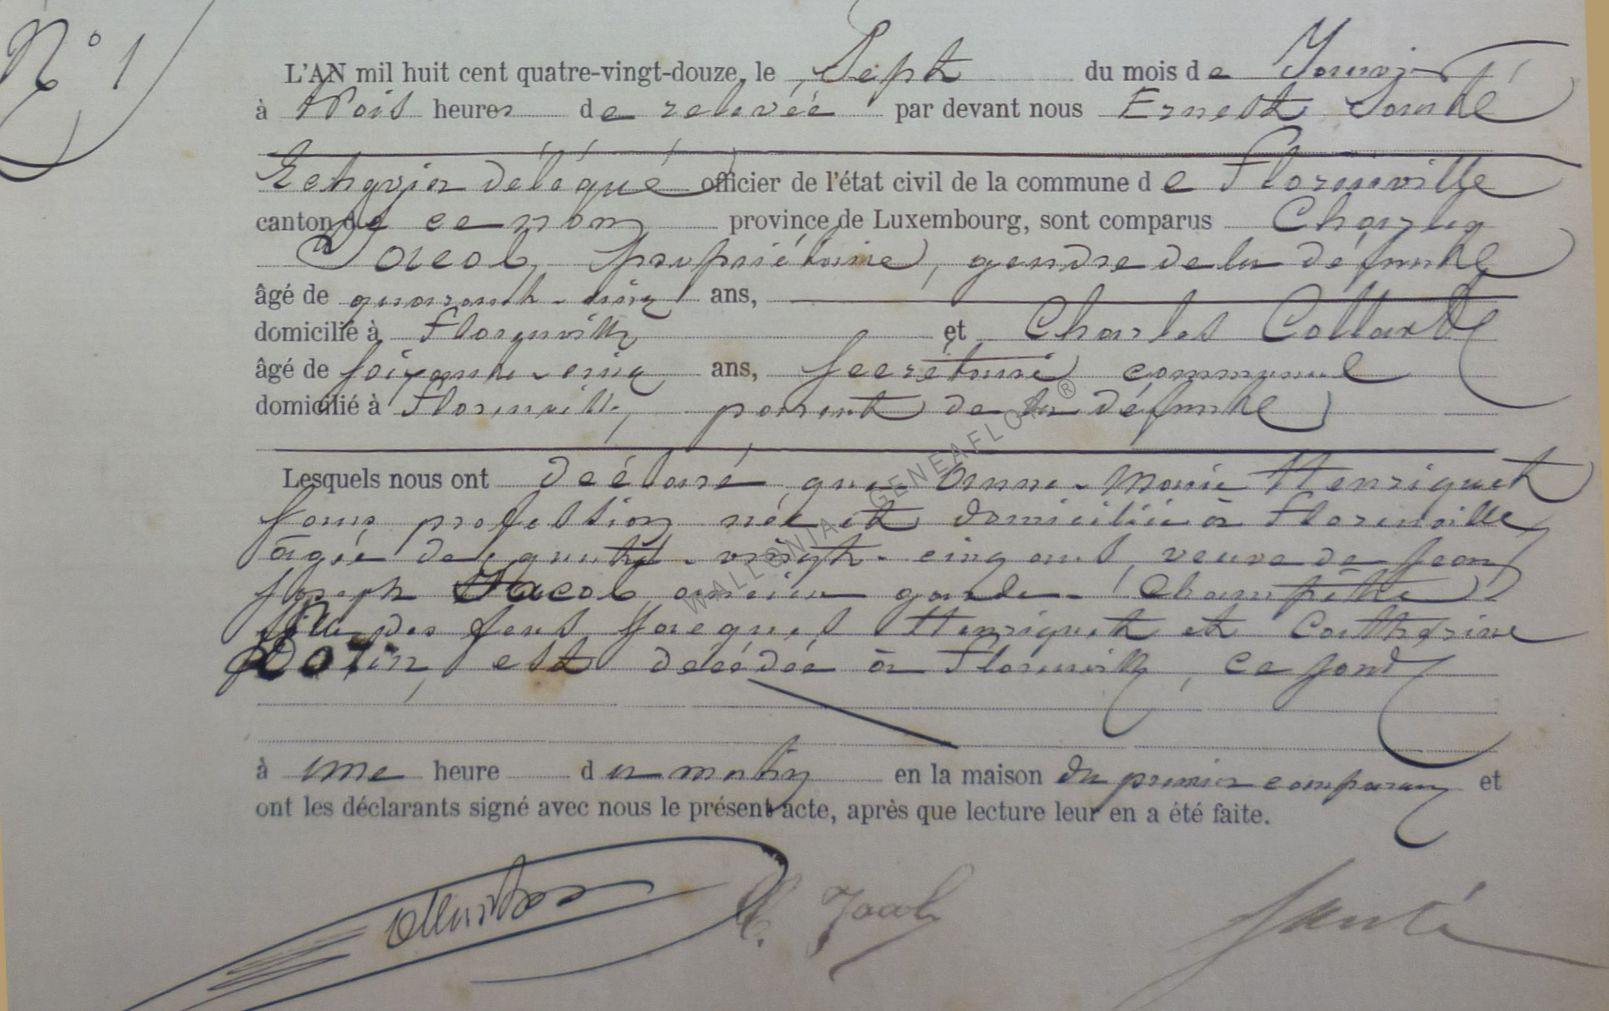 N° 1
L'AN mil huit cent quatre-vingt-douze, le Sept du mois de Janvier
à trois heures de relevée par devant nous Ernest Santé
Echevin délégué officier de l'état civil de la commune de Florenville
canton de ce nom province de Luxembourg, sont comparus Charles
Jacob, propriétaire, gendre de la défunte
âgé de quarante-cinq ans,
domicilié à Florenville et Charles Collard
âgé de soixante-cinq ans, secrétaire communal
domicilié à Florenville, parent de la défunte
Lesquels nous ont déclaré que Anne-Marie Henriquet
sans profession née et domiciliée à Florenville
âgée de quatre-vingt-cinq ans, veuve de Jean
Joseph Jacob ancien garde-champêtre
fille des feus Jacques Henriquet et Catherine
est décédée à Florenville, ce jourd
à une heure du matin en la maison du premier comparant et
ont les déclarants signé avec nous le présent acte, après que lecture leur en a été faite.
C. Jacob Santé
WALLONIA GENEAFLOR ®